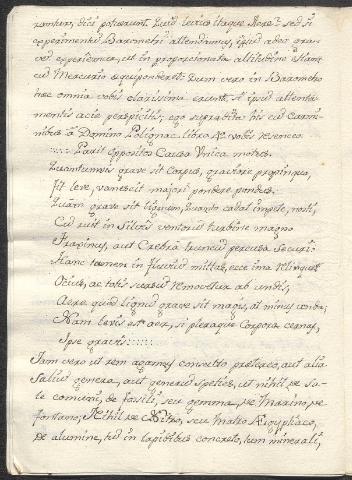 rantur, dici potuerunt. Quid levius itaque Aere? sed si
experimentum Barometri attendamus, ipsum adeo gra-
vem experiemur, ut in proportionata altitudine etiam
cum Mercurio aequiponderet. Dum vero in Barometro
haec omnia vobis clarissima erunt, et ipsum attenta
mentis acie perspicietis; ego supradicta his cum Carmi-
nibus a Domino Polignac libro vobis recenseo.
..... Parit oppositos Causa Unica motus.
Quantumvis grave sit Corpus, graviore propinquo,
Fit leve, vanescit majori pondere pondus.
Quam grave sit lignum, quando cadat impete, nosti,
Cum ruit in Silvis ventorum turbine magno
Fraxinus, aut Crebra truncum percussa Securi
Hanc tamen in fluvium mittas, ecce ima relinquet
Ocius, ac totis sursum removetur ab undis;
Aere quod lignum grave sit magis, at minus unda;
Nam levis est aer, si pleraque Corpora cernas,
Ipse gravis .....
Jam vero ut rem agamus consulto praetereo, aut alia
Salium genera, aut generum species, ut nihil de Sa-
le comuni, de fossili, seu gemma, de Marino, de
fontano; Nihil de Nitro, seu Natro Aegyptiaco,
de alumine, tum in lapidibus concreto, tum minerali,